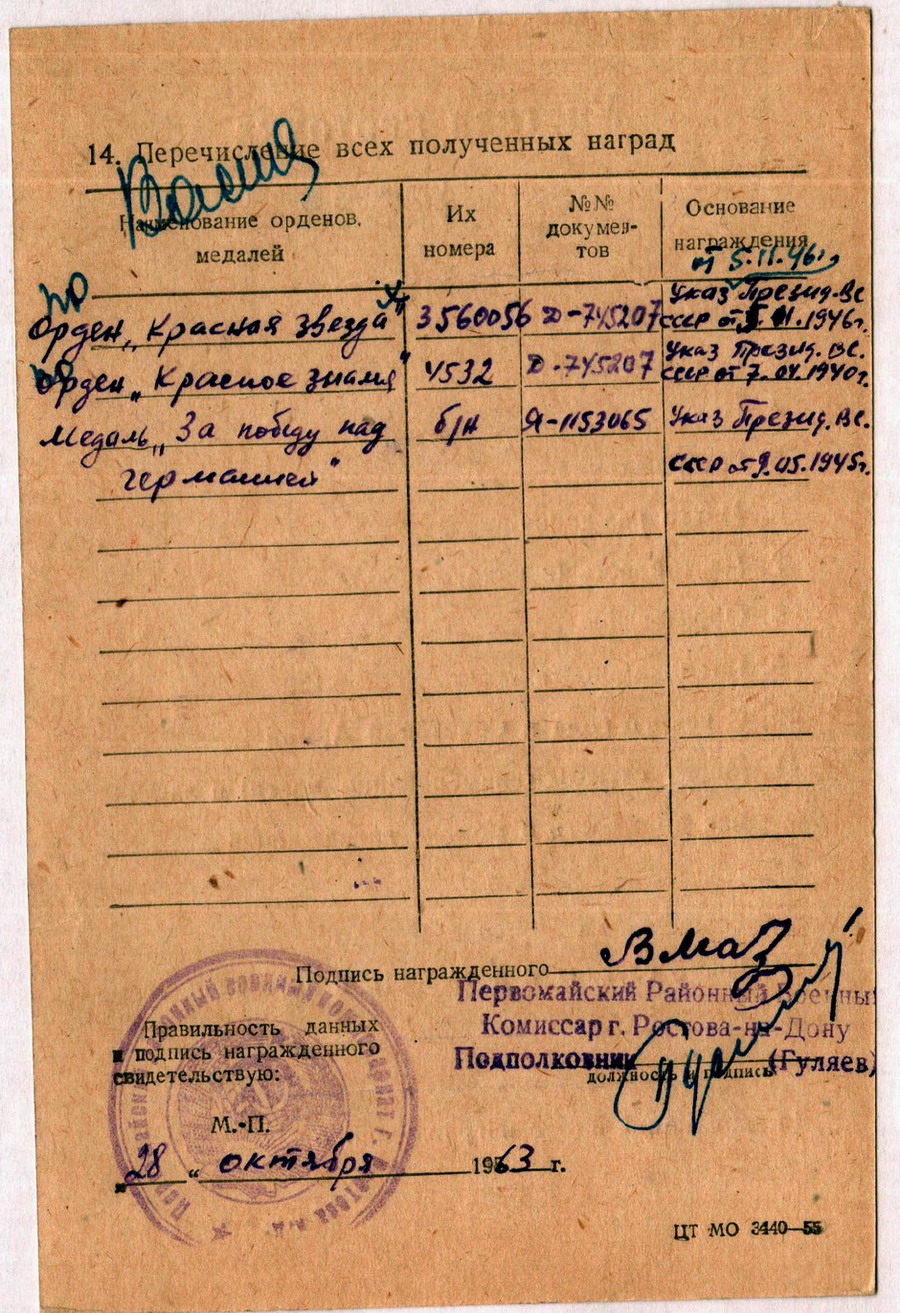 14. Перечисление всех полученных наград
Наименование орденов, медалей
Их номера
№№ докумен-
тов
Основание награждения
от 5.11.46г.
Орден „Красная звезда" 3560056 Д-745207 Указ Презид. ВС
СССР от 5.11.1946г.
Орден „Красное знамя" 4532 Д-745207 Указ Презид. ВС.
СССР от 7.04.1940г.
Медаль „За победу над б/н Я-1153065 Указ Презид. ВС.
германией" СССР от 9.05.1945г.
Подпись награжденного
Первомайский Районный Военный
Комиссар г. Ростова-на-Дону
Подполковник (Гуляев)
должность и подпись
Правильность данных
и подпись награжденного
свидетельствую:
М.-П.
„28" октября 1963 г.
ЦТ МО 3440—55